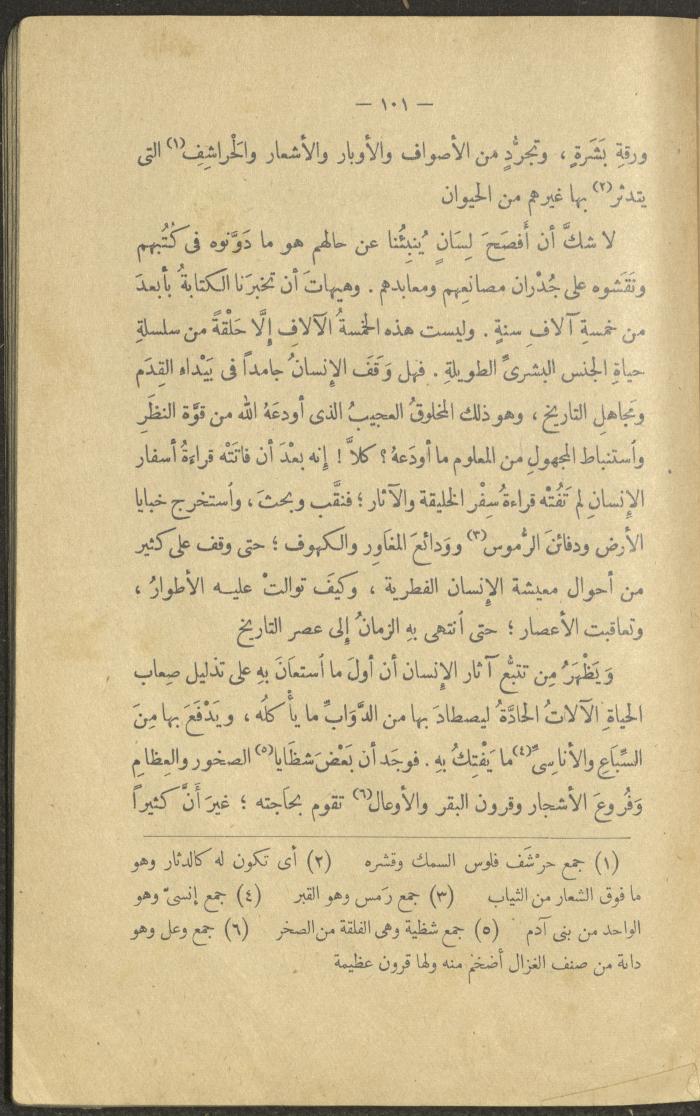 — ١٠١ —
ورقةِ بَشَرَةٍ ، وتجرُّدٍ من الأصواف والأوبار والأشعار والحْراشِفِ(١) التى
يتدثر(٢) بها غيرهم من الحيوان
لا شكَّ أن أَفصَحَ لِسَانٍ يُنبِئُنا عن حالهم هو ما دَوَّنوه فى كُتُبهم
ونَقَشوه على جُدْران مصانعِهم ومعابدهم . وهيهاتَ أن تخبرَنا الكتابةُ بأبعدَ
من خمسةِ آلاف سنةٍ . وليست هذه الخمسةُ الآلافِ إِلَّا حَلْقةً من سلسلةِ
حياةِ الجنس البشرىِّ الطويلةِ . فهل وَقَفَ الإِنسانُ جامداً فى بَيْداء القِدَم
ومَجاهلِ التاريخ ، وهو ذلك المخلوقُ العجيبُ الذى أودعَهُ الله من قوَّة النظَرِ
وٱستنباط المجهولِ من المعلوم ما أودَعهُ ؟ كلاَّ ! إِنه بعْدَ أن فاتَتْه قراءةُ أسفار
الإِنسانِ لم تَفُتْه قراءةُ سِفْر الخليقة والآثار ؛ فنقَّب وبحثَ ، وٱستخرج خبايا
الأرض ودفائنَ الرُّموس(٣) ووَدائعَ المغَاوِر والكهوف ؛ حتى وقف على كثير
من أحوال معيشة الإِنسان الفطرية ، وكيفَ توالتْ عليه الأطوارُ ،
وتعاقبت الأعصار ؛ حتى ٱنتهى بهِ الزمانُ إِلى عصر التاريخ
وَيَظْهَرُ مِن تتبُّع آثار الإِنسان أن أولَ ما ٱستعانَ بهِ على تذليل صِعاب
الحياةِ الآلاتُ الحادَّةُ ليصطادَ بها من الدَّوَابِّ ما يأْكلُه ، ويَدْفَعَ بها مِنَ
السِّبَاعِ والأناسِىِّ(٤) ما يَفْتِكُ بهِ . فوجَد أن بَعْضَ شظَايا(٥) الصخور والعِظامِ
وَفُروعَ الأشجار وقرون البقر والأوعال(٦) تقوم بحاَجته ؛ غيرَ أَنَّ كثيراً
(١) جمع حرْشَف فلوس السمك وقشره (٢) أى تكون له كالدثار وهو
ما فوق الشعار من الثياب (٣) جمع رَمس وهو القبر (٤) جمع إنسىّ وهو
الواحد من بنى آدم (٥) جمع شظية وهى الفلقة من الصخر (٦) جمع وعل وهو
دابة من صنف الغزال أضخم منه ولها قرون عظيمة